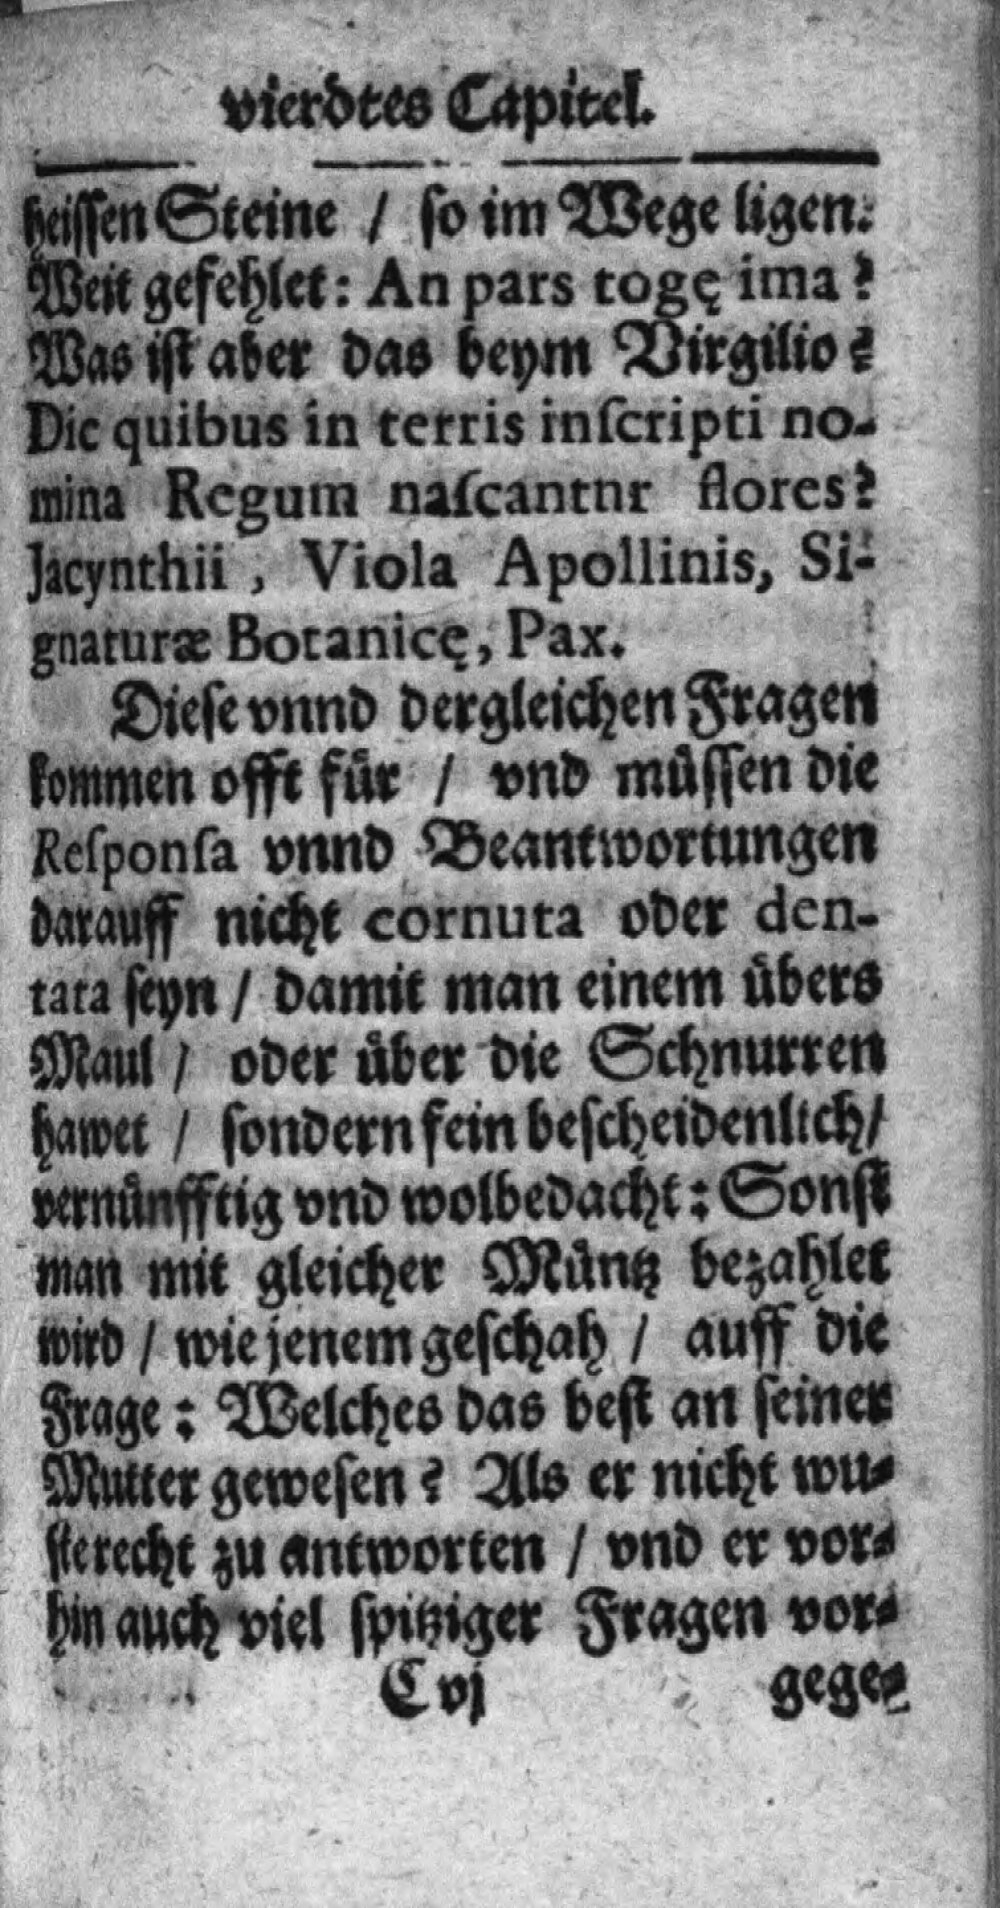 vierdtes Capitel.
heiſſen Steine / ſo im Wege ligen.
Weit gefehlet: An pars togę ima?
Was iſt aber das beym Virgilio?
Dic quibus in terris inſcripti no-
mina Regum naſcantnr flores?
Jacynthii, Viola Apollinis, Si-
gnaturæ Botanicę, Pax.
Dieſe vnnd dergleichen Fragen
kommen offt fuͤr / vnd muͤſſen die
Reſponſa vnnd Beantwortungen
darauff nicht cornuta oder den-
tata ſeyn / damit man einem uͤbers
Maul / oder uͤber die Schnurren
hawet / ſondern fein beſcheidenlich/
vernuͤnfftig vnd wolbedacht: Sonſt
man mit gleicher Muͤntz bezahlet
wird / wie jenem geſchah / auff die
Frage: Welches das beſt an ſeiner
Mutter geweſen? Als er nicht wu-
ſte recht zu antworten / vnd er vor-
hin auch viel ſpitziger Fragen vor-
C vj gege-